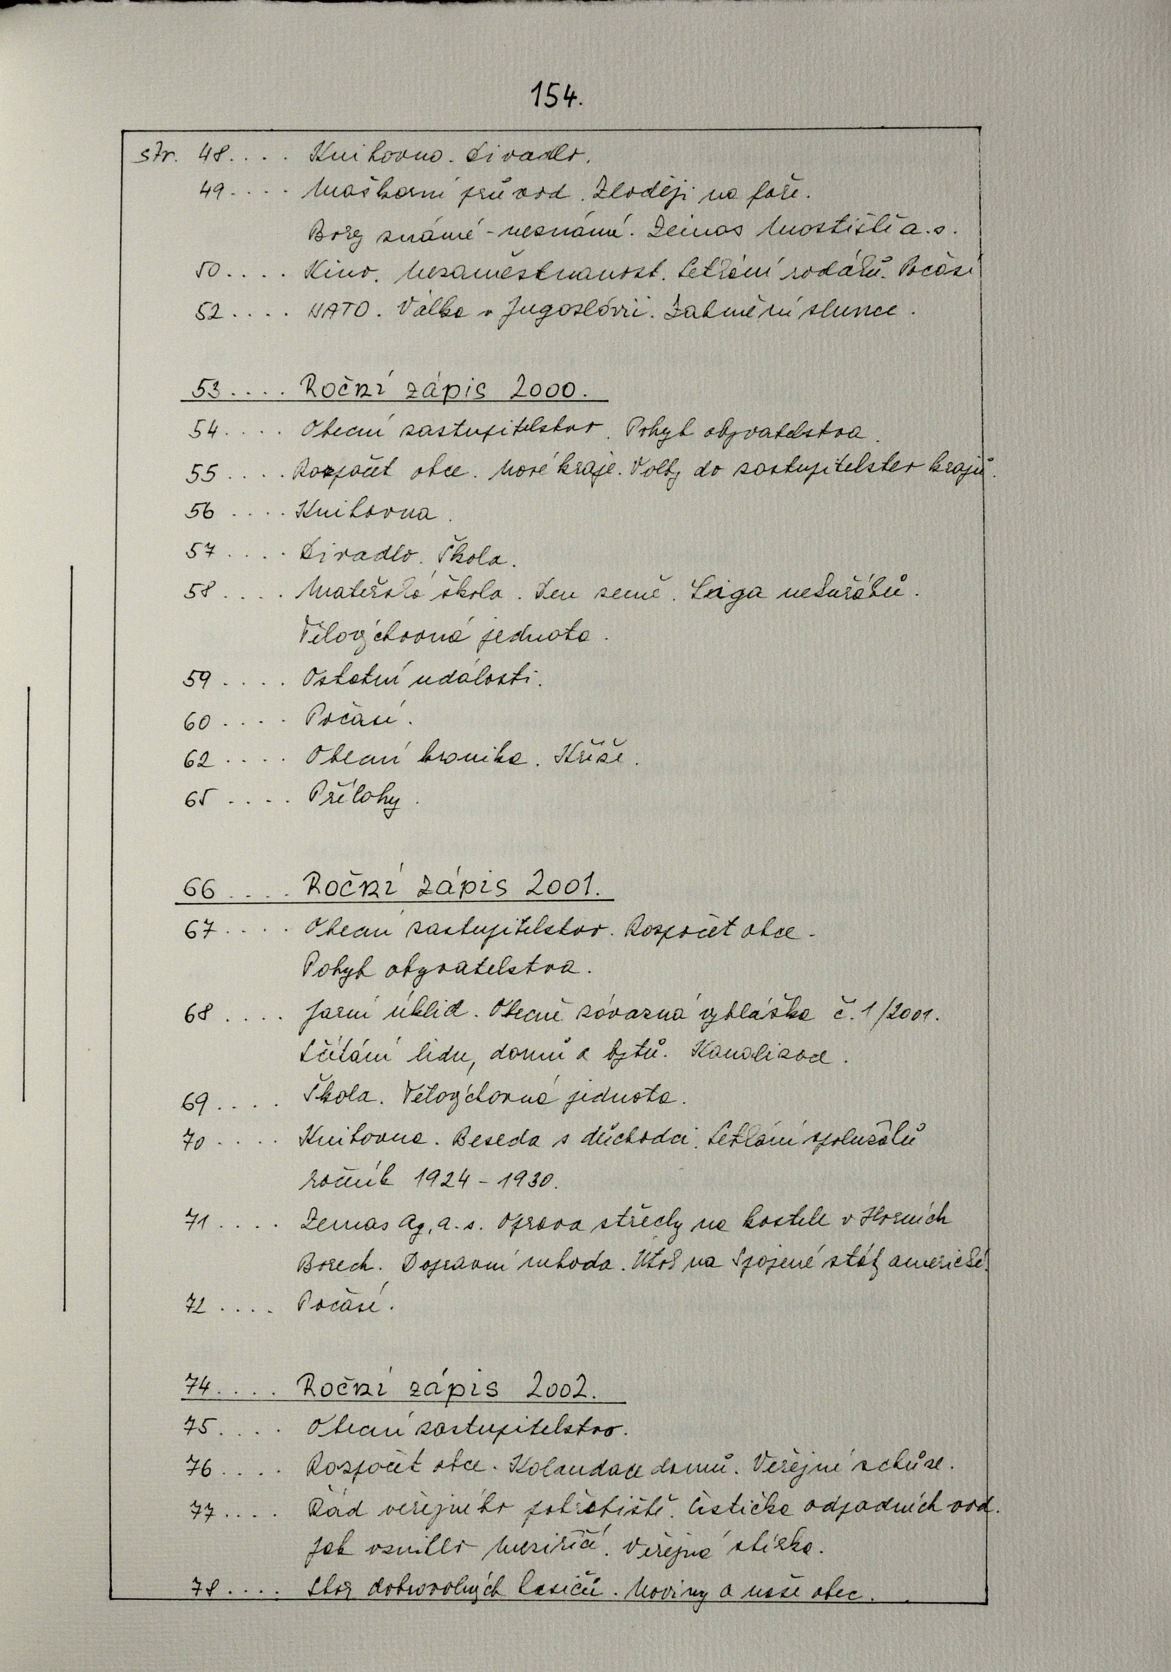 154.
str. 48.... Knihovna. Divadlo.
49.... Maškarní průvod. Zloději na faře.
Bory známé-neznámé. Zemas Mostiště a.s.
50.... Kino. Nezaměstnanost. Setkání rodáků. Počasí
52.... NATO. Válka v Jugoslávii. Zatmění slunce.
53.... Roční zápis 2000.
54.... Obecní zastupitelstvo. Pohyb obyvatelstva.
55.... Rozpočet obce. Nové kraje. Volby do zastupitelstev krajů.
56.... Knihovna.
57.... Divadlo. Škola.
58.... Mateřská škola. Den země. Liga nekuřáků.
Tělovýchovná jednota.
59.... Ostatní události.
60.... Počasí.
62.... Obecní kronika. Kříže.
65.... Přílohy.
66.... Roční zápis 2001.
67.... Obecní zastupitelstvo. Rozpočet obce.
Pohyb obyvatelstva.
68.... Jarní úklid. Obecně závazná vyhláška č.1/2001.
Sčítání lidu, domů a bytů. Kanalizace.
69.... Škola. Tělovýchovná jednota.
70.... Knihovna. Beseda s důchodci. Setkání spolužáků
ročník 1924-1930.
71.... Zemas Ag, a.s. Oprava střechy na kostele v Horních
Borech. Dopravní nehoda. Útok na Spojené státy americké.
72.... Počasí.
74.... Roční zápis 2002.
75.... Obecní zastupitelstvo.
76.... Rozpočet obce. Kolaudace domů. Veřejné schůze.
77.... Řád veřejného pohřebiště. Čistička odpadních vod.
Jak vzniklo Meziříčí. Veřejná sbírka.
78.... Sbor dobrovolných hasičů. Noviny a naše obec.